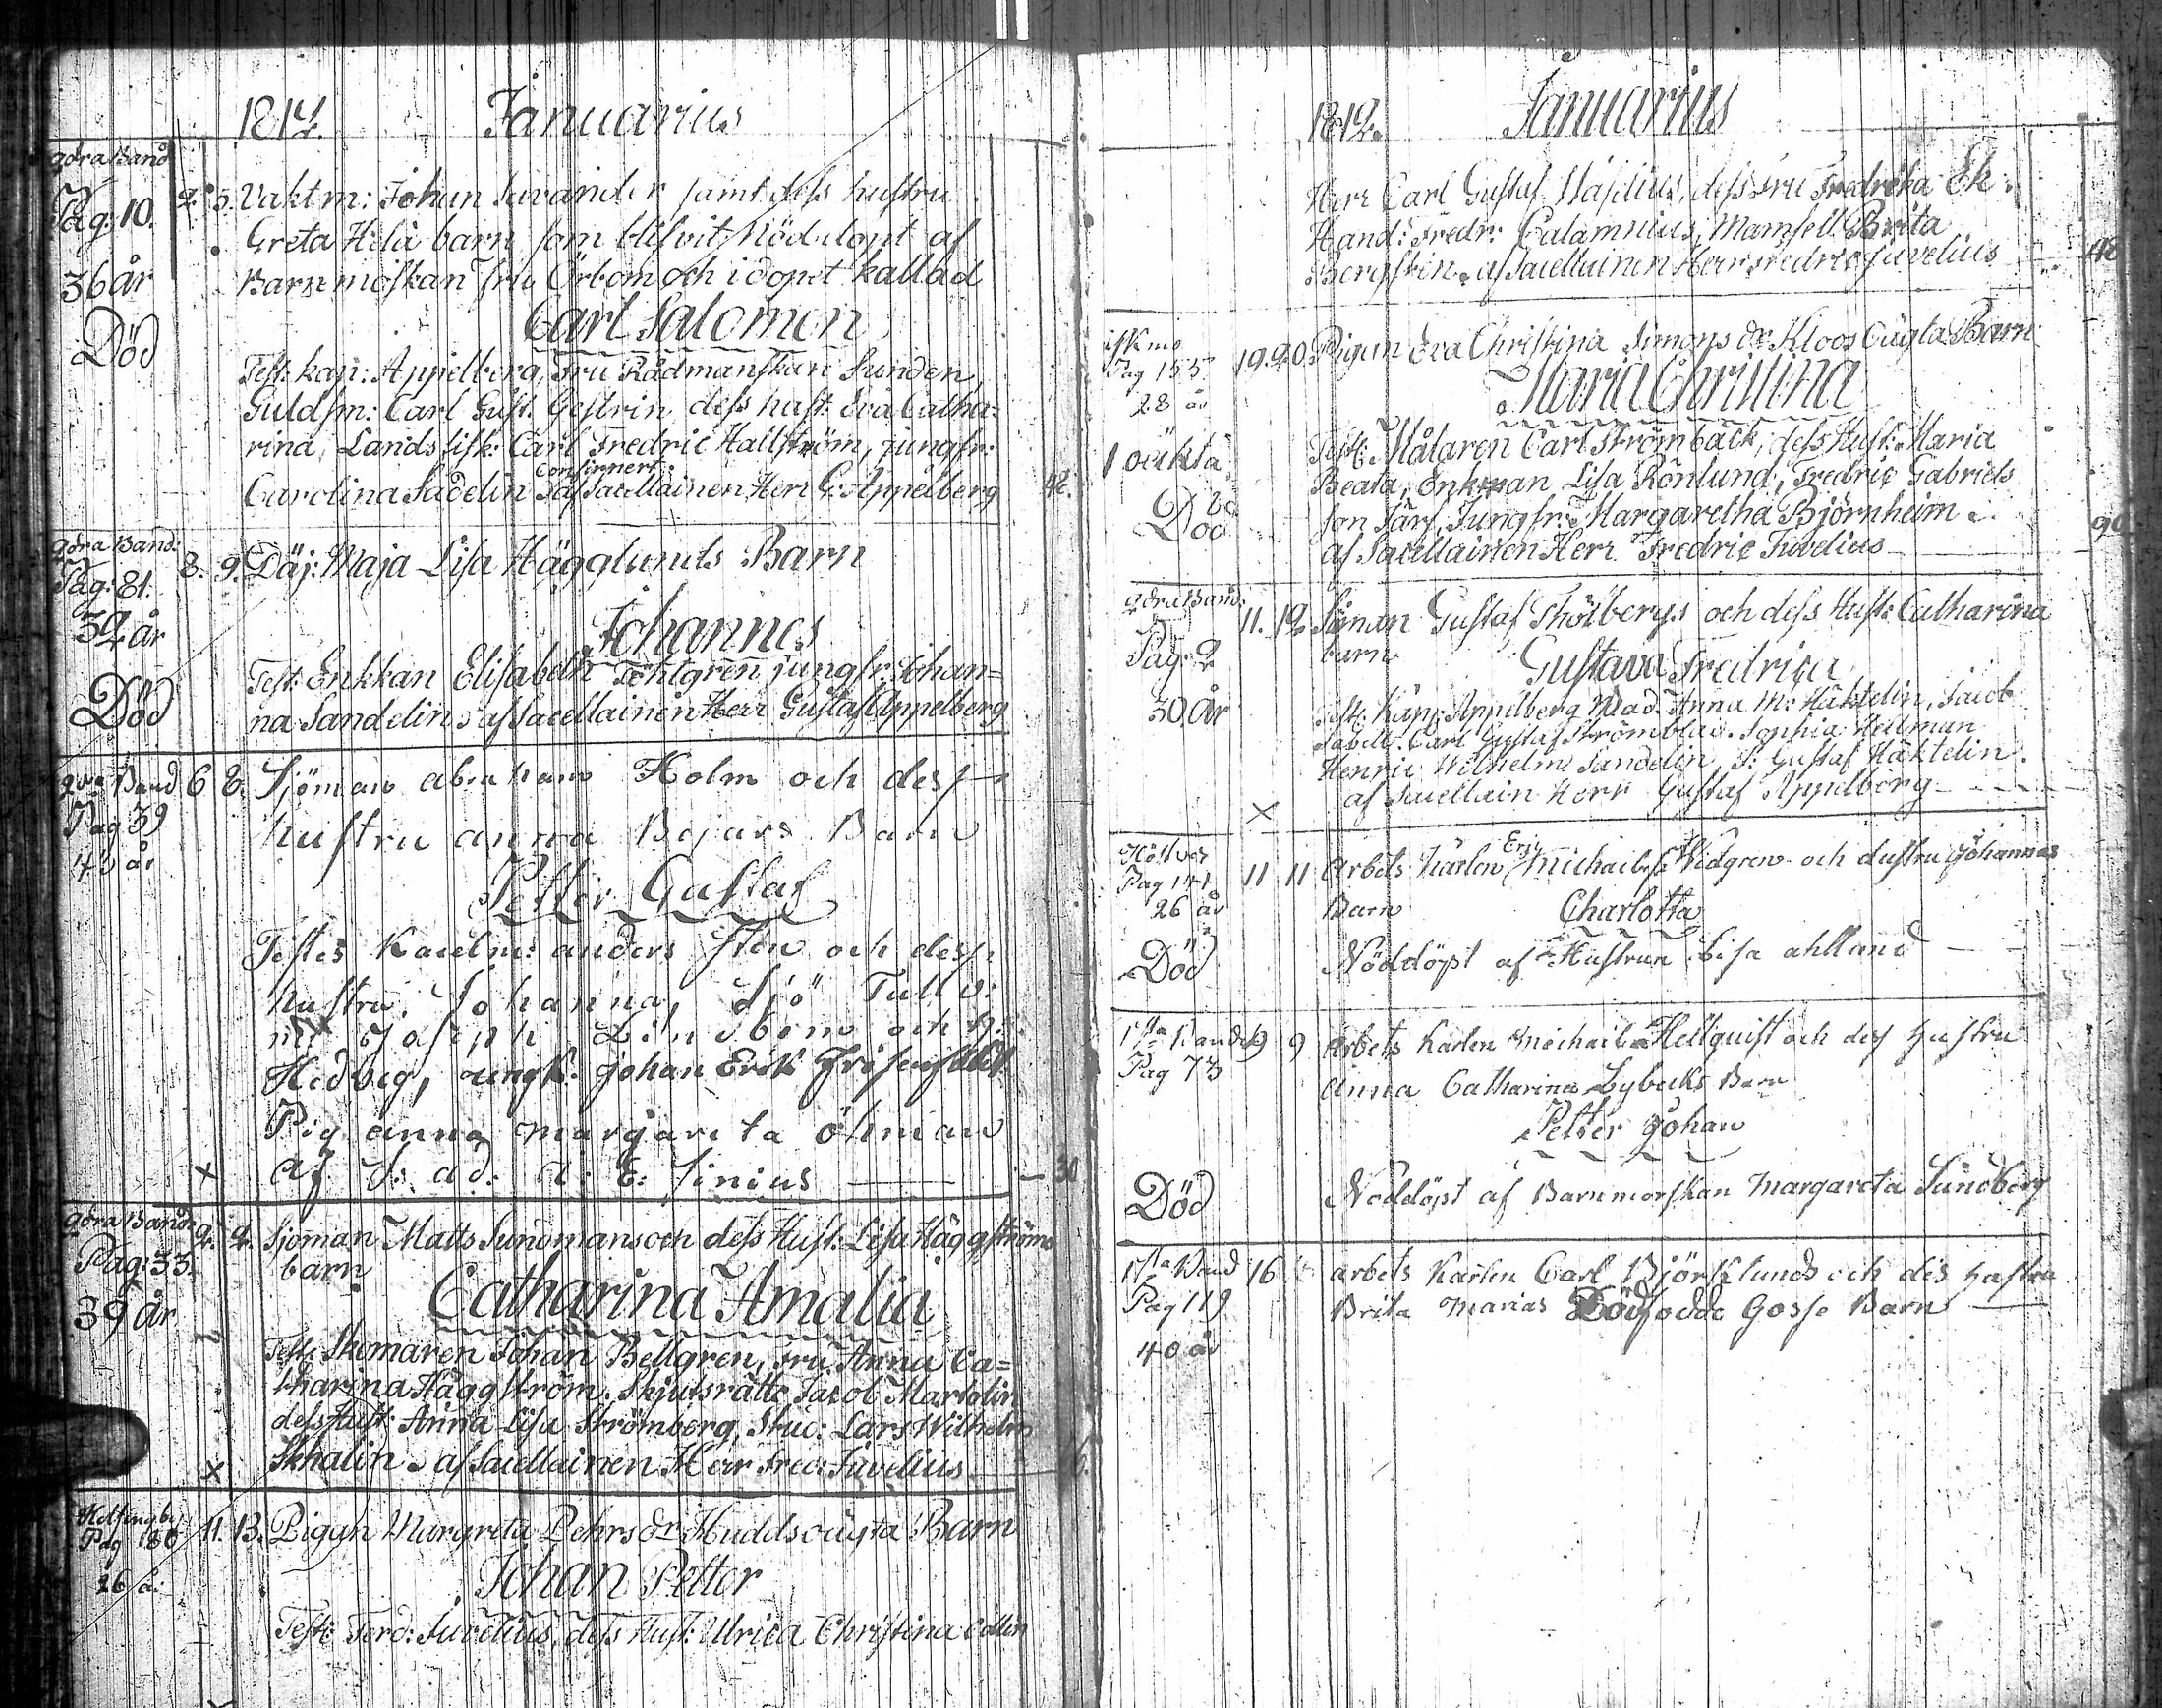 1812. Januarius
2dra Band
Pag: 10.
36 år
Död
2. 5. Vaktm: Johan Suvander samt dess hustru
Greta Hilà barn som blifvit Nöddöpt af
Barnmorskan fru Örbom och i dopet kallad
Carl Salomon
Test: kap: Appelberg, Fru Rådmanskan Sunden
Guldsm: Carl Gust: Gestrin dess hust: Eva Catha=
rina, Landsfisk: Carl Fredric Hallström, jungfr:
Confirmert
Carolina Sadelin af Sacellainen Herr G: Appelberg 48.
2dra Band:
Pag: 81.
32 år
Död
8. 9. Däj: Maja Lisa Hägglunds Barn
Johannes
Test: Enkkan Elisabeth Töhlgren jungfr: Johan=
na Sandelin. af Sacellainen Herr Gustaf Appelberg
2dra Band
Pag 39
6 8. Sjöman abraham Holm och dess
hustru anna Bojars Barn
Petter Gustaf
Testes anders Sten och dess
hustru, Johanna, Sjö Tull v:
Hedvig, ungk: Johan Erik
Pig anna margareta öhman
af V: ad: A: E: Sinius 30
2dra Band:
Pag: 33.
39 år
2. 4. Sjöman Matts Sundmans och dess Hust: Lisa Häggströms
barn
Catharina Amalia
Test: Skomaren Johan Bellgren, Fru Anna Ca=
tharina Häggström. Skjutsrätte Jacob Martolin
dess Hust: Anna Lisa Strömberg, Stud: Lars Wilhelm
Skhalin. af Sacellainen Herr Fred: Juvelius
Helsingby
Pag 180
26 år
11. 13. Pigan Margreta Pehrsdr Hudds oägta Barn
Johan Petter
Test: Ferd: Juvelius, dess Hust: Ulrica Christina Collin
1812. Januarius
Herr Carl Gustaf Wasilius, dess Fru Fredrika Ek.
Hand: Fredr: Calamnius, Mamsell Brita
Bergsten. af Sacellainen Herr Fredric Juvelius 48
Pag 155
28 år
1 oäkta
Död
19. 20. Pigan Eva Christina Simonsdr Kloos Oägta Barn
Maria Christina
Test: Målaren Carl Strömbäck, dess Hust: Maria
Beata, Enkman Lisa Rönlund, Fredric Gabriels
son Särs, Jungfr: Margaretha Björnheim.
af Sacellainen Herr Fredric Juvelius
2dra Band:
Pag: 2
30 år
11. 12. Sjöman Gustaf Thölbergs och dess Hust: Catharina
barn
Gustava Fredrica
Test: Kapp: Appelberg Mad. Anna M: Häktelin, Jacob
Carl Gustaf Strömblad. Sophia Hellman
Henric Wilhelm Sandelin, S: Gustaf Häktelin.
af Sacellain Herr Gustaf Appelberg
Pag 141
26 år
Död
11 11 Arbets Karlen Eric Michaels: Widgren och Hustru Johannas
Barn
Charlotta
Nöddöpt af Hustrun Lisa ahlland
1sta Bandet
Pag 73
Död
9 9 Arbets Karlen Michael Hellquist och des Hustru
Anna Catharina Lybecks Barn
Petter Johan
Noddöpt af Barnmorskan Margareta Sundberg
1sta Band
Pag 119
40 år
16 arbets Karlen Carl Björklunds och dis Hustru
Brita Marias Dödfödde Gosse Barn